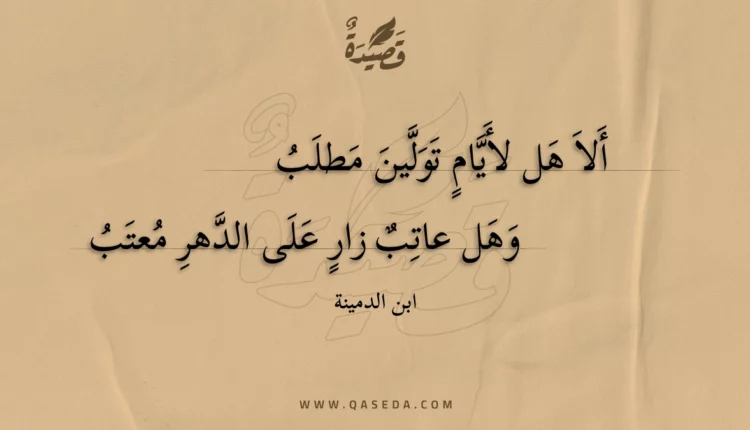 قَصِيدَةٌ
أَلاَ هَل لأَيَّامٍ تَوَلَّينَ مَطلَبُ
وَهَل عاتِبٌ زارٍ عَلَى الدَّهرِ مُعتَبُ
ابن الدمينة
WWW.QASEDA.COM